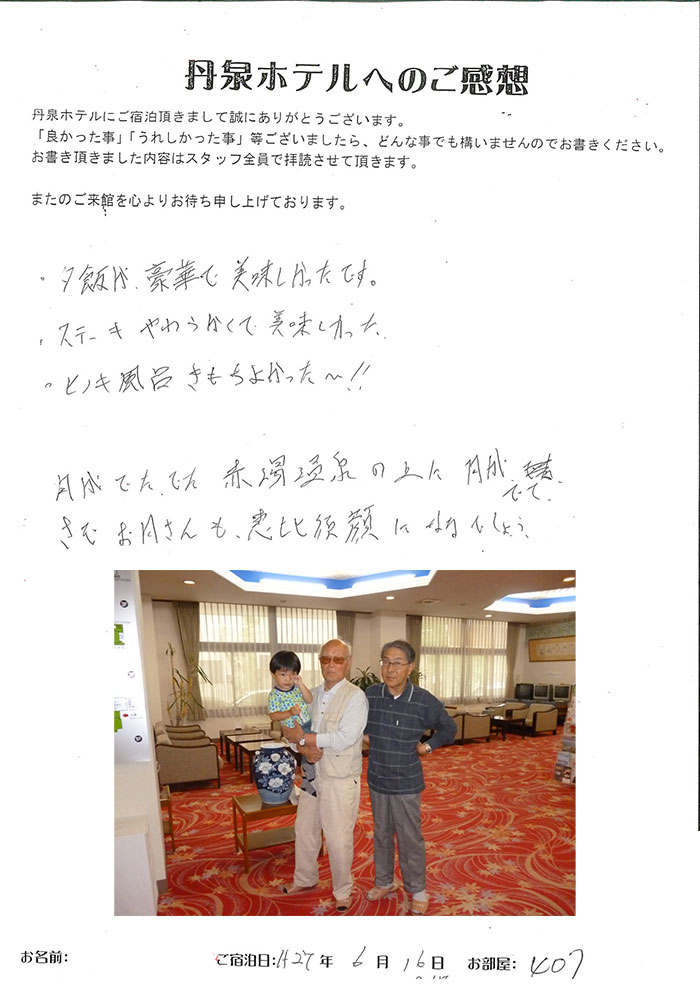 丹泉ホテルへのご感想
丹泉ホテルにご宿泊頂きまして誠にありがとうございます。
「良かった事」「うれしかった事」等ございましたら、どんな事でも構いませんのでお書きください。
お書き頂きました内容はスタッフ全員で拝読させて頂きます。
またのご来館を心よりお待ち申し上げております。
・夕飯が、豪華で美味しかったです。
・ステーキ やわらかくて美味しかった
・ヒノキ風呂 きもちよかった〜!!
月がでた、でた 赤湯温泉の上に 月が でて、
さぞ お月さんも、恵比須顔に なるでしょう、
お名前:
ご宿泊日: H27 年 6 月 16 日 お部屋: 407